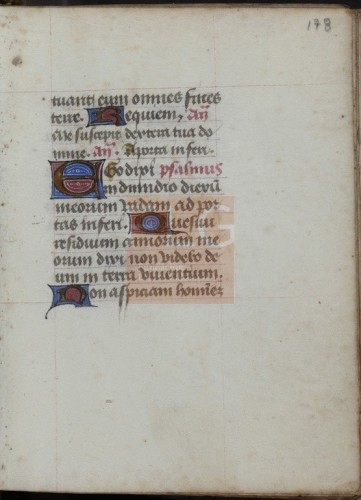 178
tuanti eum omnes fines
terre. Requiem, añ
Me suscepit dextera tua do
mine. añ. A porta inferi.
Ego dixi psalmus
in dimidio dierū
meorum vadam ad por
tas inferi. Quesiui
residuum annorum me
orum dixi non videbo de
um in terra viventium.
Non aspiciam hominez